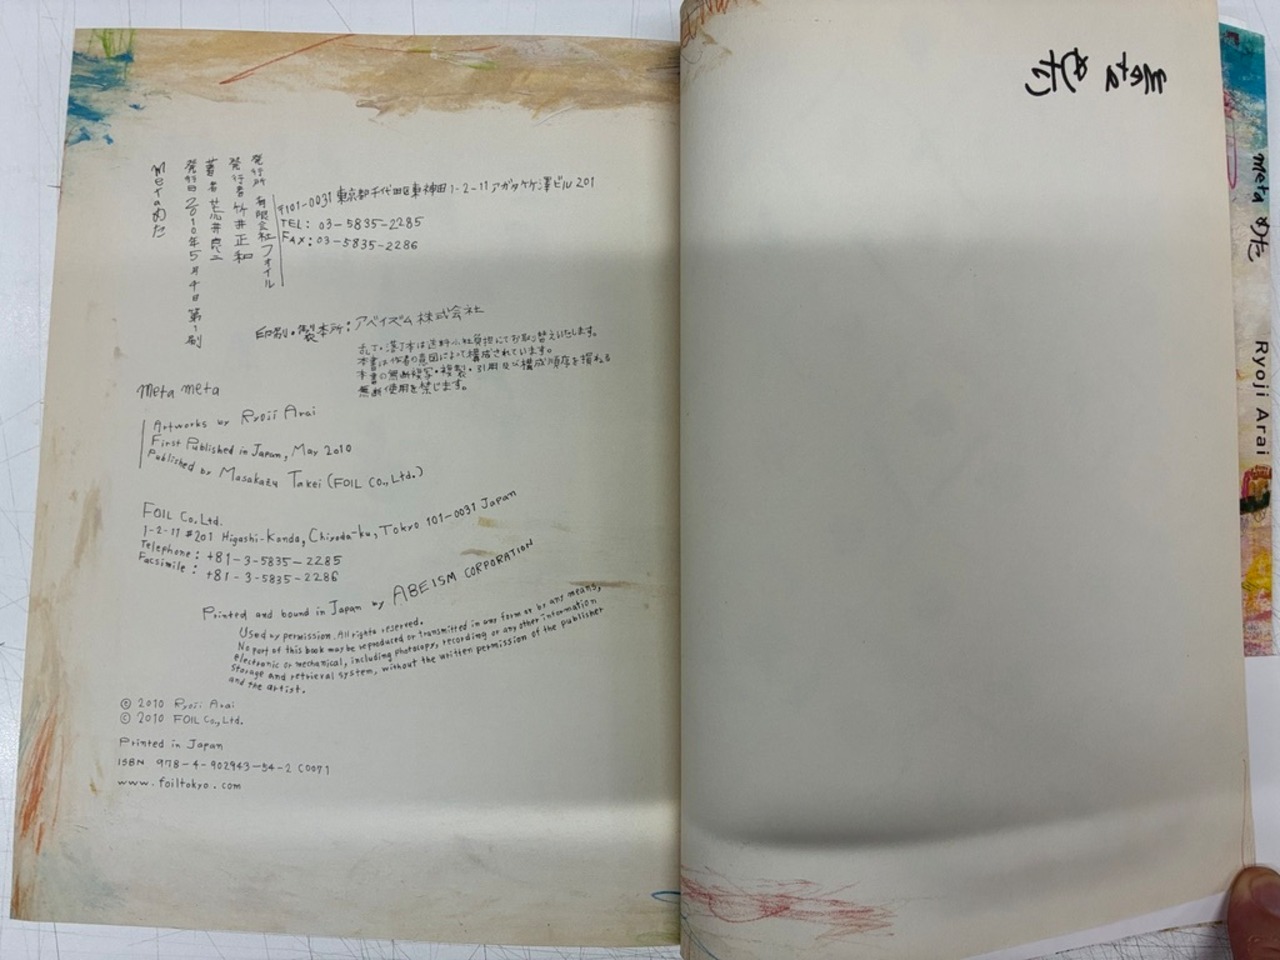 metaめた
発行日 2010年5月4日 第1刷
著者 荒井良二
発行者 竹井正和
発行所 有限会社フォイル
〒101-0031 東京都千代田区東神田1-2-11 アガタ竹澤ビル201
TEL: 03-5835-2285
FAX: 03-5835-2286
印刷・製本所:アベイズム株式会社
乱丁・落丁本は送料小社負担にてお取り替えいたします。
本書は作者の意図によって構成されています。
本書の無断複写・複製・引用及び構成順序を損ねる
無断使用を禁じます。
meta meta
Artworks by Ryoji Arai
First Published in Japan, May 2010
Published by Masakazu Takei (FOIL CO., Ltd.)
FOIL Co., Ltd.
1-2-11 #201 Higashi-Kanda, Chiyoda-ku, Tokyo 101-0031 Japan
Telephone: +81-3-5835-2285
Facsimile: +81-3-5835-2286
Printed and bound in Japan by ABEISM CORPORATION
Used by permission. All rights reserved.
No part of this book may be reproduced or transmitted in any form or by any means,
electronic or mechanical, including photocopy, recording or any other information
storage and retrieval system, without the written permission of the publisher
and the artist.
© 2010 Ryoji Arai
© 2010 FOIL Co., Ltd.
Printed in Japan
ISBN 978-4-902943-54-2 C0071
www.foiltokyo.com
meta めた
meta めた
Ryoji Arai